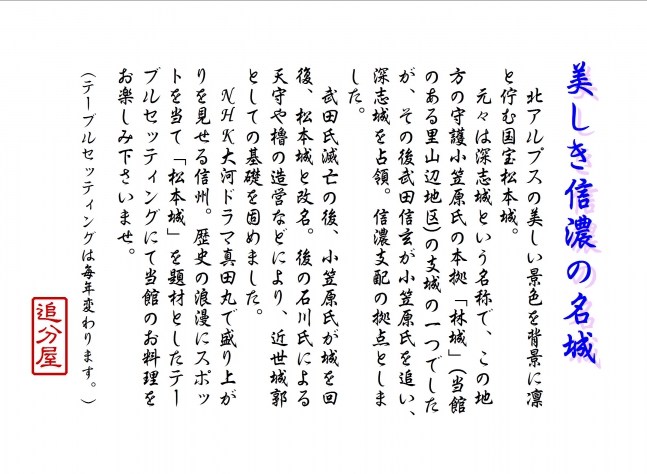 美しき信濃の名城
北アルプスの美しい景色を背景に凛
と佇む国宝松本城。
元々は深志城という名称で、この地
方の守護小笠原氏の本拠「林城」(当館
のある里山辺地区)の支城の一つでした
が、その後武田信玄が小笠原氏を追い、
深志城を占領。信濃支配の拠点としま
した。
武田氏滅亡の後、小笠原氏が城を回
後、松本城と改名。後の石川氏による
天守や櫓の造営などにより、近世城郭
としての基礎を固めました。
NHK大河ドラマ真田丸で盛り上が
りを見せる信州。歴史の浪漫にスポッ
トを当て「松本城」を題材としたテー
ブルセッティングにて当館のお料理を
お楽しみ下さいませ。
(テーブルセッティングは毎年変わります。)
追分屋